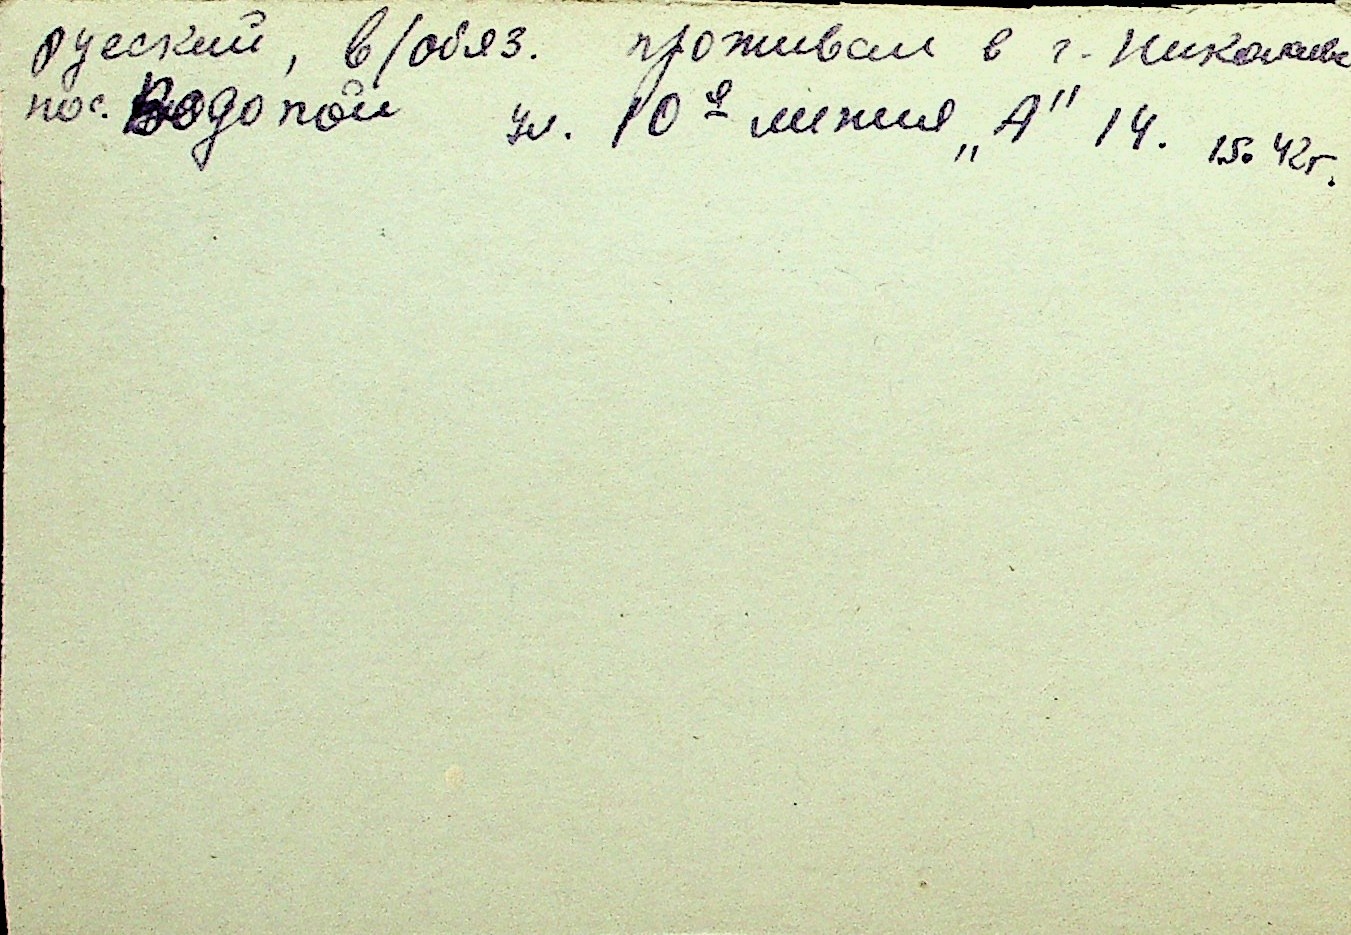 русский, в/обяз. проживал в г. Николаеве
пос. Водопой ул. 10я линия „А" 14. 15. 42г.